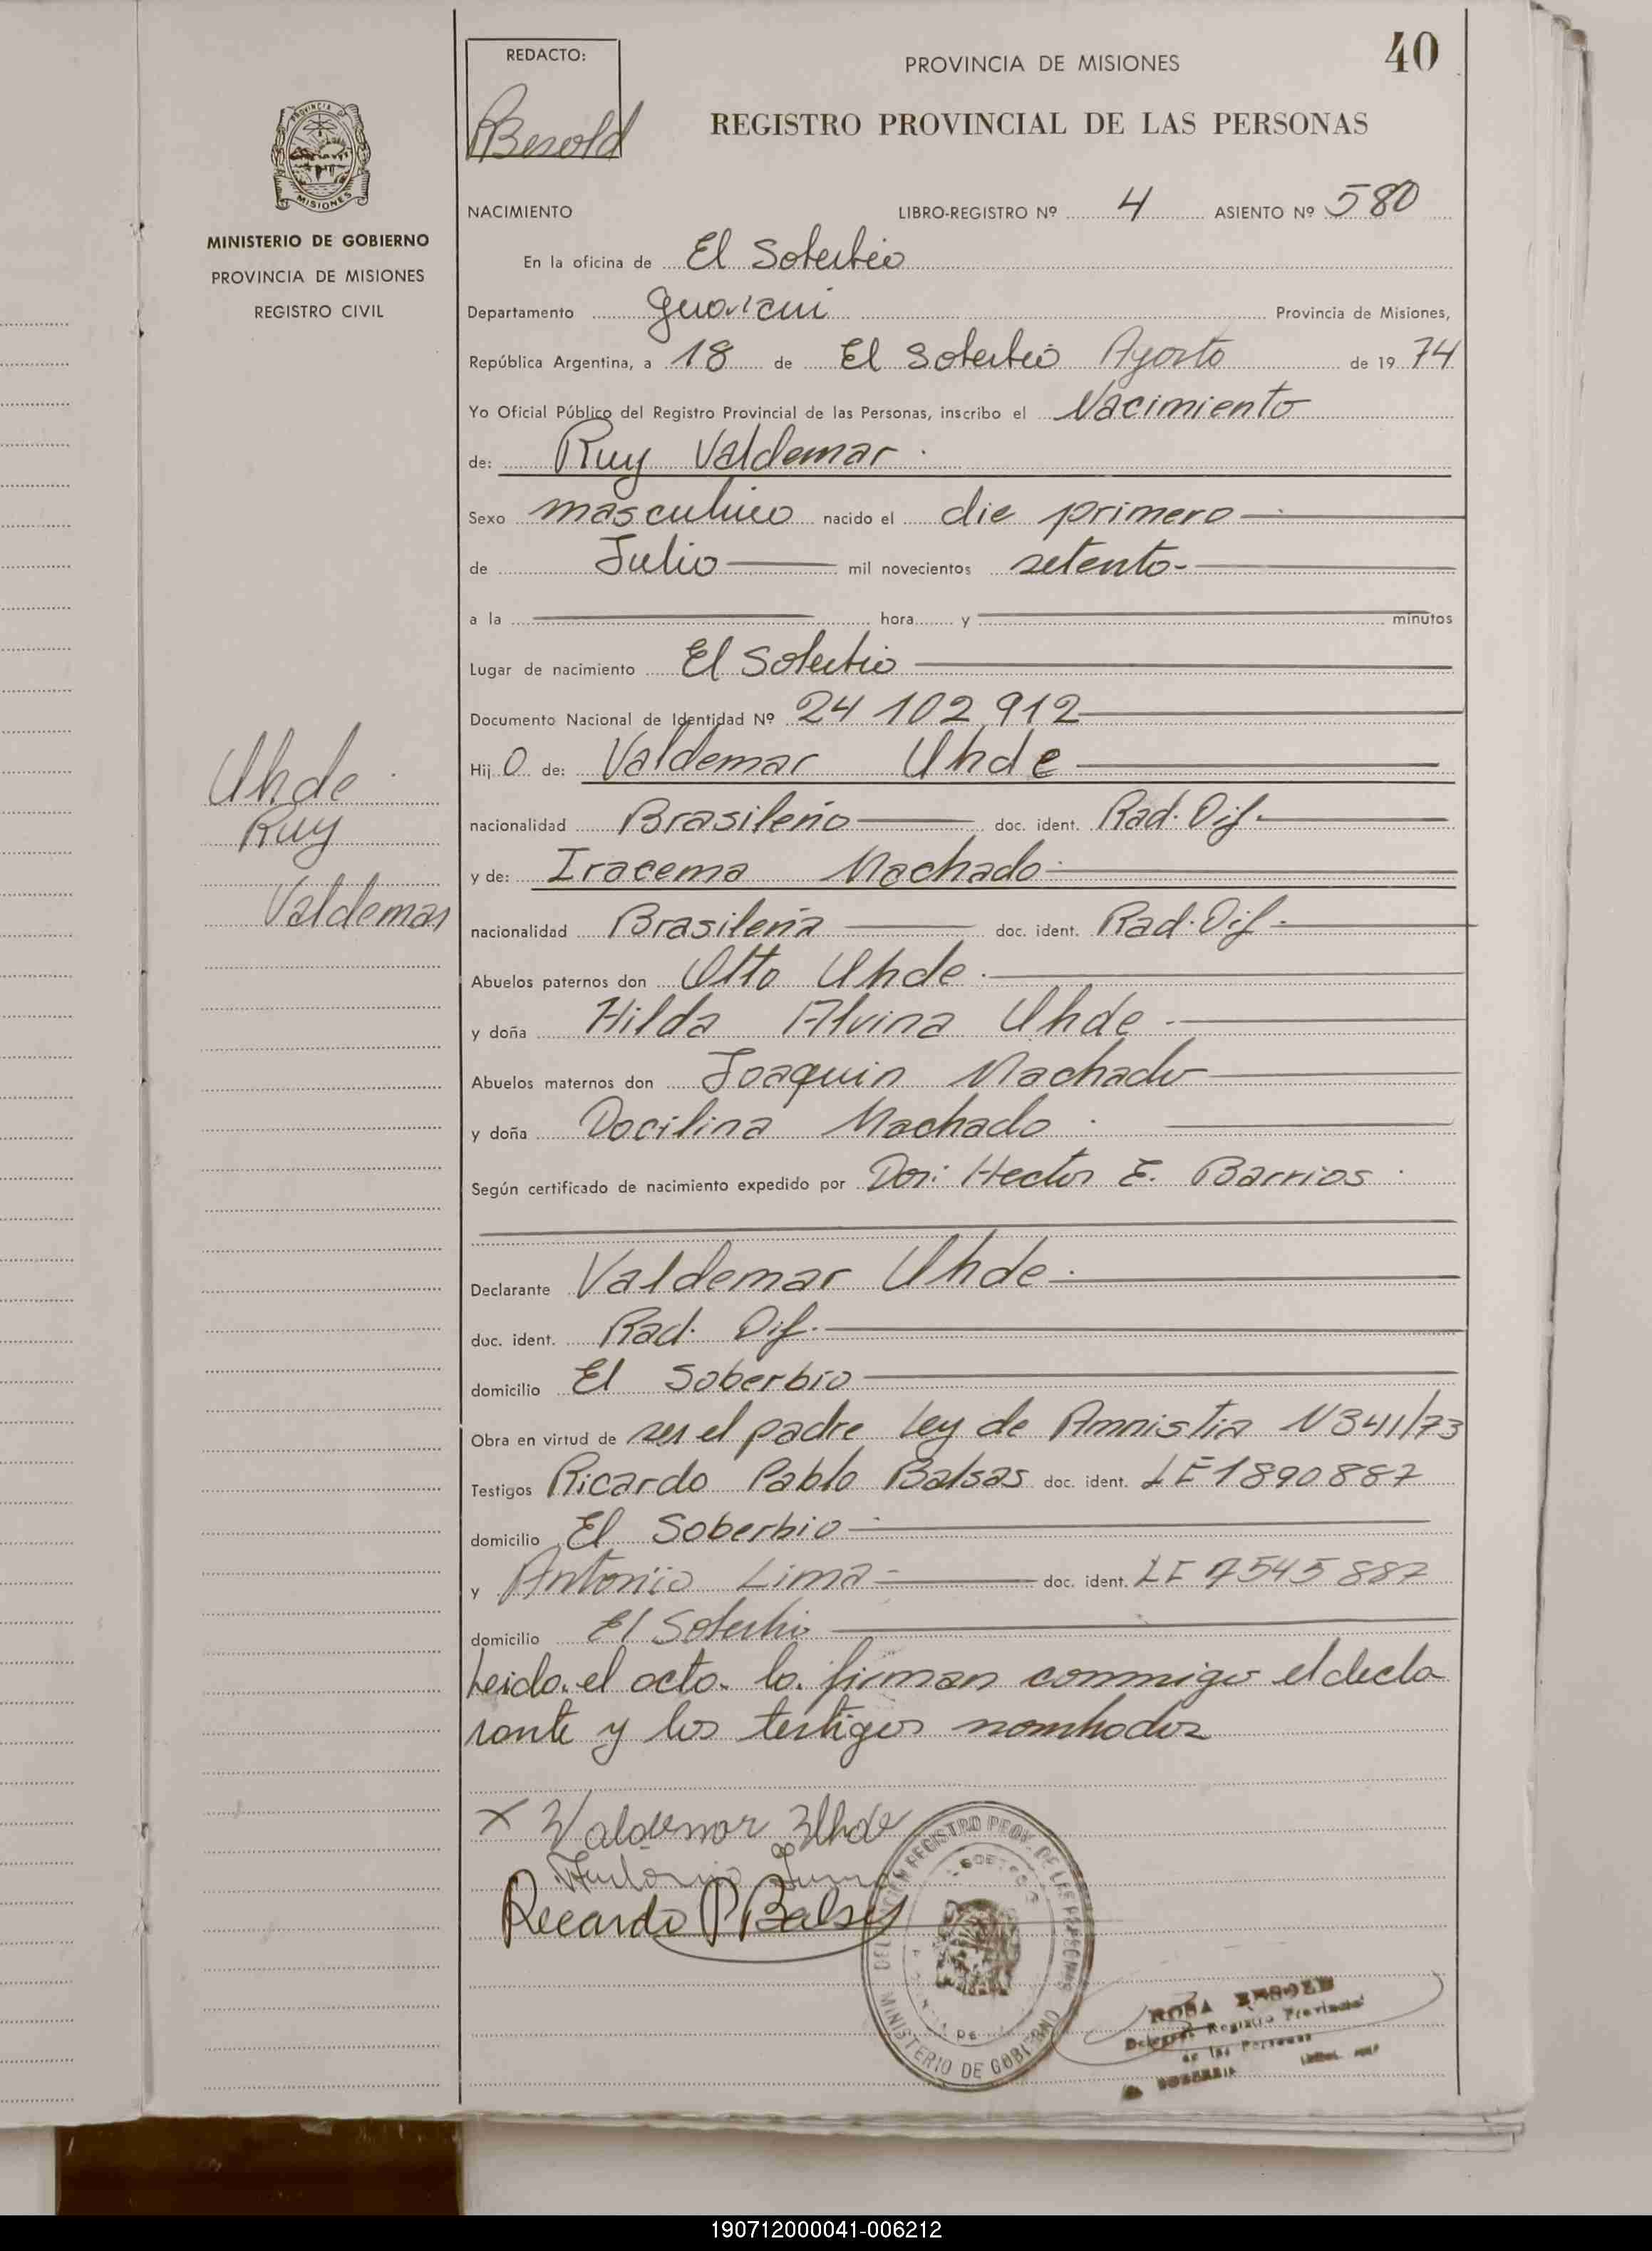 40
REDACTO:
PROVINCIA DE MISIONES
RBesold
REGISTRO PROVINCIAL DE LAS PERSONAS
PROVINCIA DE
MISIONES
MINISTERIO DE GOBIERNO
PROVINCIA DE MISIONES
REGISTRO CIVIL
NACIMIENTO LIBRO-REGISTRO Nº 4 ASIENTO Nº 580
En la oficina de El Soberbio
Departamento Guarani Provincia de Misiones,
República Argentina, a 18 de El Soberbio Agosto de 19 74
Yo Oficial Público del Registro Provincial de las Personas, inscribo el Nacimiento
de: Ruy Valdemar
Sexo masculino nacido el die primero
de Julio mil novecientos setento
a la hora y minutos
Lugar de nacimiento El Soberbio
Documento Nacional de Identidad Nº 24 102 912
Hij o de: Valdemar Uhde
nacionalidad Brasileño doc. ident. Rad. Dif.
y de: Iracema Machado
nacionalidad Brasileña doc. ident. Rad. Dif.
Uhde
Ruy
Valdemar
Abuelos paternos don Otto Uhde
y doña Hilda Alvina Uhde
Abuelos maternos don Joaquin Machado
y doña Docilina Machado
Según certificado de nacimiento expedido por Dor: Hector E. Barrios
Declarante Valdemar Uhde
doc. ident. Rad. Dif.
domicilio El Soberbio
Obra en virtud de ser el padre Ley de Amnistia N 341/73
Testigos Ricardo Pablo Balsas doc. ident. LE 1890887
domicilio El Soberbio
y Antonio Lima doc. ident. LE 7545887
domicilio El Soberbio
Leido el acto lo firman conmigo el decla
rante y los testigos nombrados
X Valdemar Uhde
Antonio Lima
Ricardo P Balsas
DELEGACION REGISTRO PROV. DE LAS PERSONAS
MINISTERIO DE GOBIERNO
ROSA BESOLD
Delegada Registro Provincial
de las Personas
EL SOBERBIO
190712000041-006212